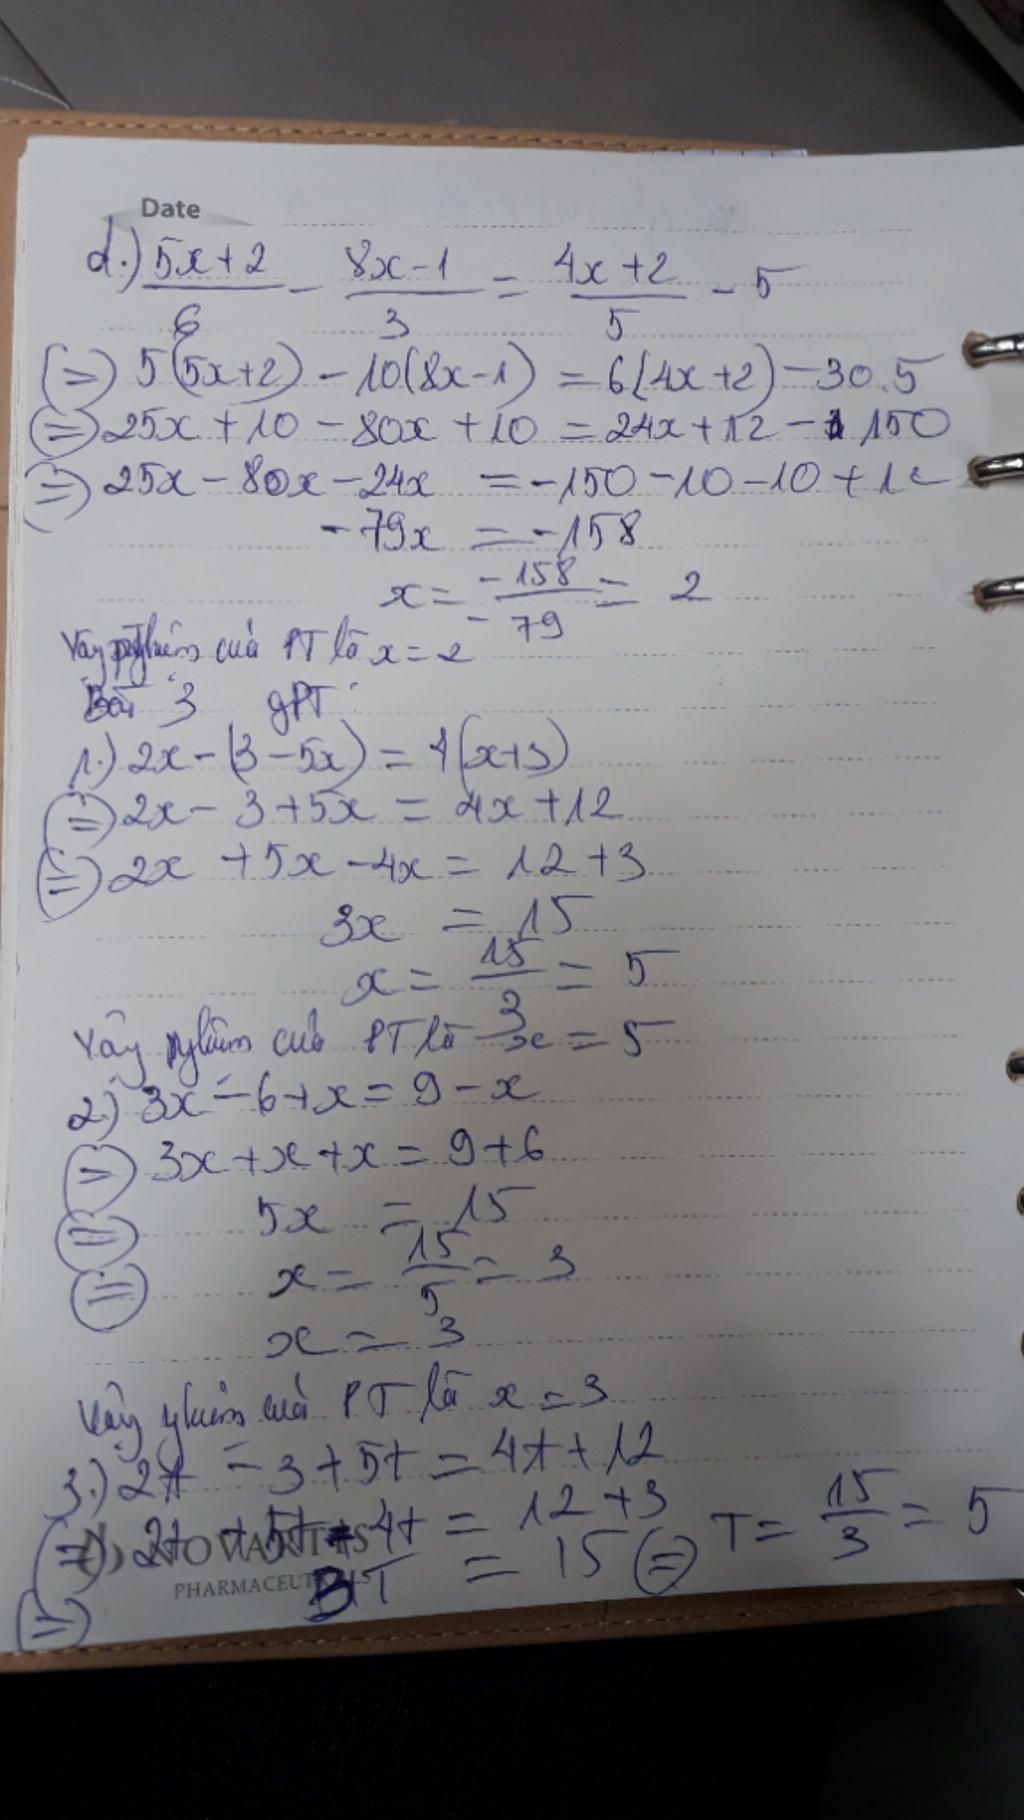 Date
d.) (5x+2)/6 - (8x-1)/3 = (4x+2)/5 - 5
(=) 5(5x+2) - 10(8x-1) = 6(4x+2) - 30.5
(=) 25x + 10 - 80x + 10 = 24x + 12 - 150
(=) 25x - 80x - 24x = -150 - 10 - 10 + 12
-79x = -158
x = -158/-79 = 2
Vậy nghiệm của PT là x = 2
Bài 3 gPT:
1.) 2x - (3 - 5x) = 4(x+3)
(=) 2x - 3 + 5x = 4x + 12
(=) 2x + 5x - 4x = 12 + 3
3x = 15
x = 15/3 = 5
Vậy nghiệm của PT là x = 5
2.) 3x - 6 + x = 9 - x
(=) 3x + x + x = 9 + 6
(=) 5x = 15
(=) x = 15/5 = 3
x = 3
Vậy nghiệm của PT là x = 3
3.) 2t - 3 + 5t = 4t + 12
(=) 2t + 5t - 4t = 12 + 3
(=) 3T = 15 (=) T = 15/3 = 5
NOVARTIS
PHARMACEUTICALS